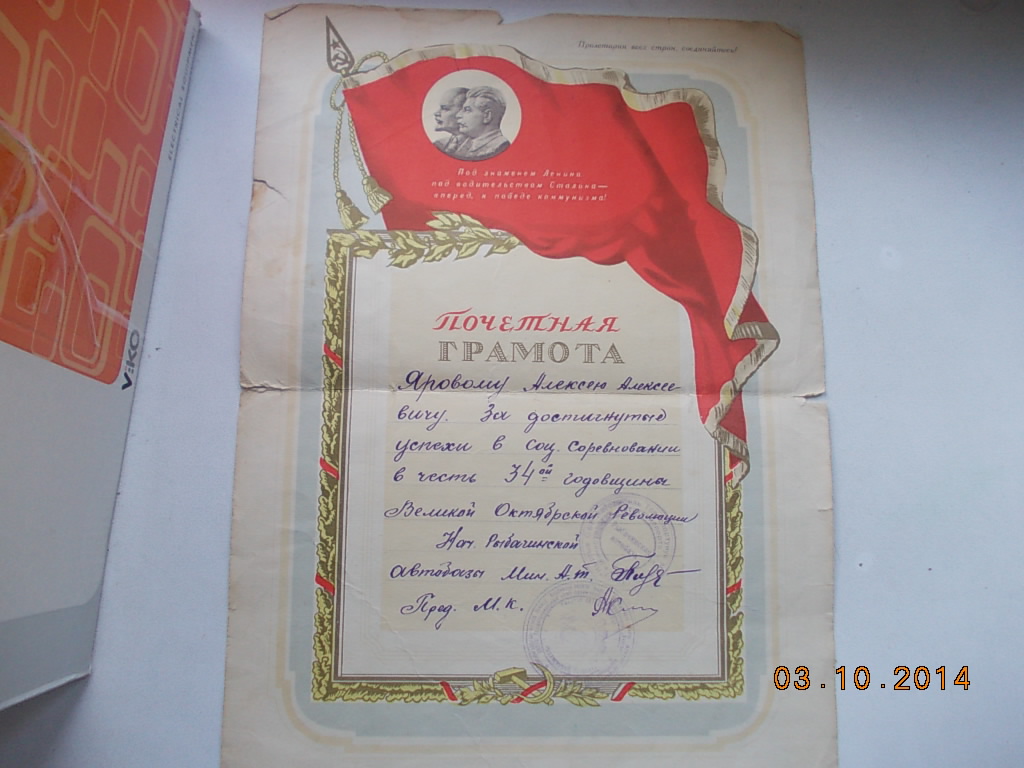 Пролетарии всех стран, соединяйтесь!
Под знаменем Ленина
под водительством Сталина—
вперед, к победе коммунизма!
ПОЧЕТНАЯ
ГРАМОТА
Яровому Алексею Алексее
вичу. За достигнутые
успехи в Соц. Соревновании
в честь 34ой годовщины
Великой Октябрской Революции
Нач. Рыбачинской
автобазы Мин. А.т.
Пред. М.К.
ViKO
03.10.2014